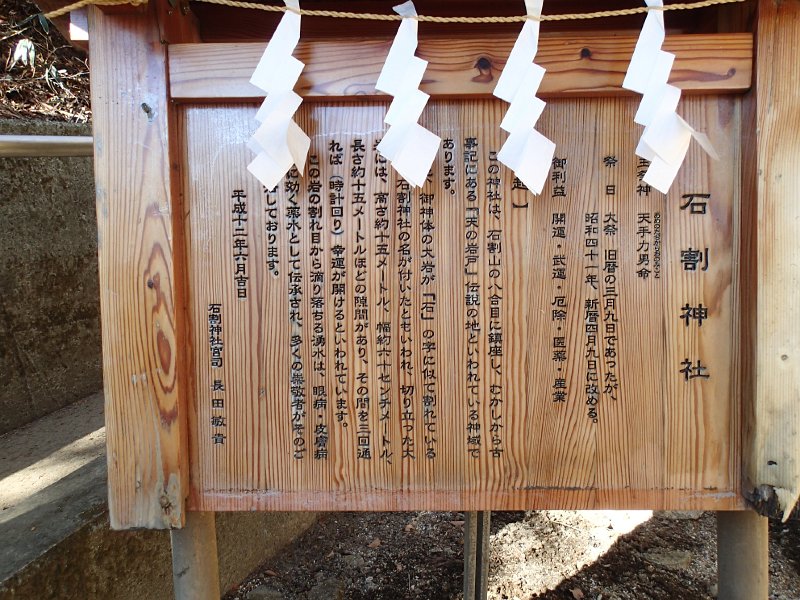 石割神社
主祭神 天手力男命
あめのたぢからおのみこと
祭 日 大祭 旧暦の三月九日であったが、
昭和四十一年、新暦四月九日に改める。
御利益 開運・武運・厄除・医薬・産業
起)
この神社は、石割山の八合目に鎮座し、むかしから古
事記にある「天の岩戸」伝説の地といわれている神域で
あります。
御神体の大岩が「石」の字に似て割れている
石割神社の名が付いたともいわれ、切り立った大
には、高さ約十五メートル、幅約六十センチメートル、
長さ約十五メートルほどの隙間があり、その間を三回通
れば(時計回り)幸運が開けるといわれています。
この岩の割れ目から滴り落ちる湧水は、眼病、皮膚病
に効く薬水として伝承され、多くの崇敬者がそのご
しております。
平成十二年六月吉日
石割神社宮司 長田敏貴